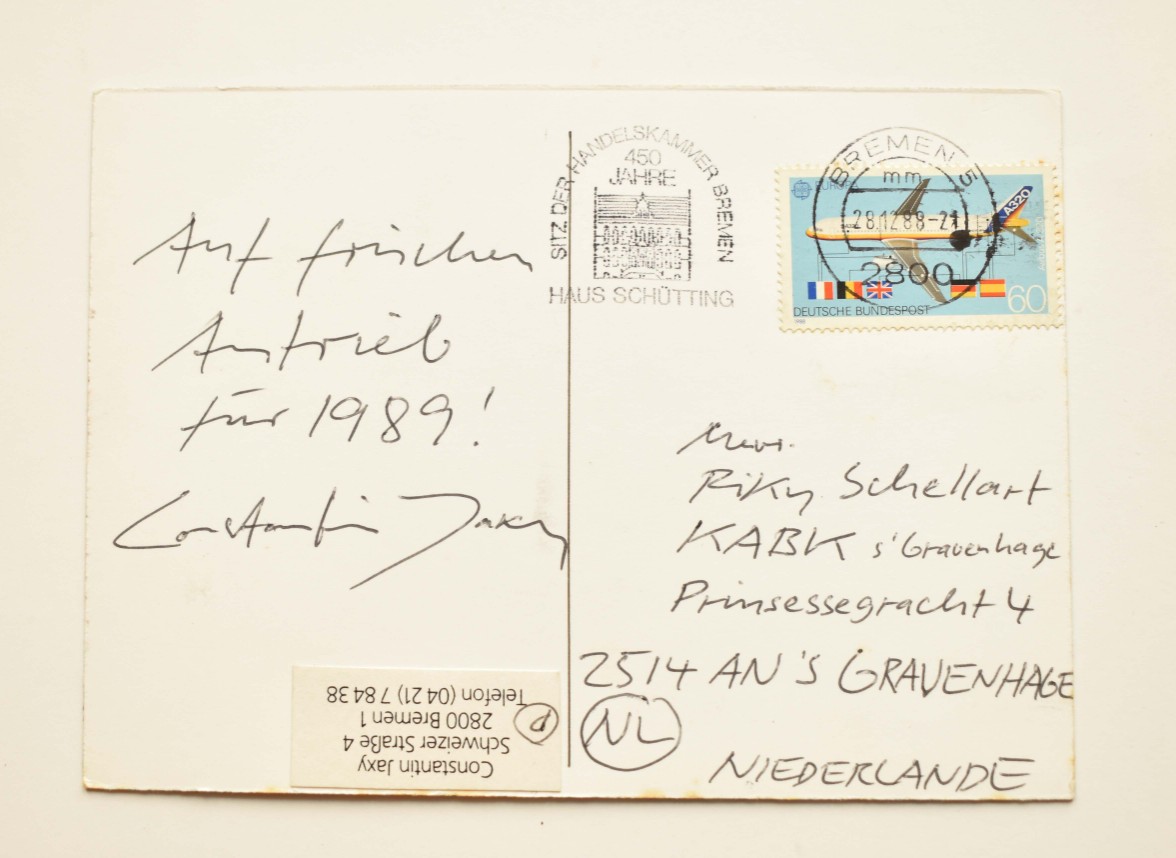 Auf frischen
Antrieb
für 1989!
Constantin Jaxy
Constantin Jaxy
Schweizer Straße 4
2800 Bremen 1
Telefon (0421) 78438
P
SITZ DER HANDELSKAMMER BREMEN
450
JAHRE
HAUS SCHÜTTING
BREMEN 5
mm
28.12.88-21
2800
EUROPA
A320
60
DEUTSCHE BUNDESPOST
1988
Mevr.
Riky Schellart
KABK s'Gravenhage
Prinsessegracht 4
2514 AN 'S GRAVENHAGE
NL
NIEDERLANDE